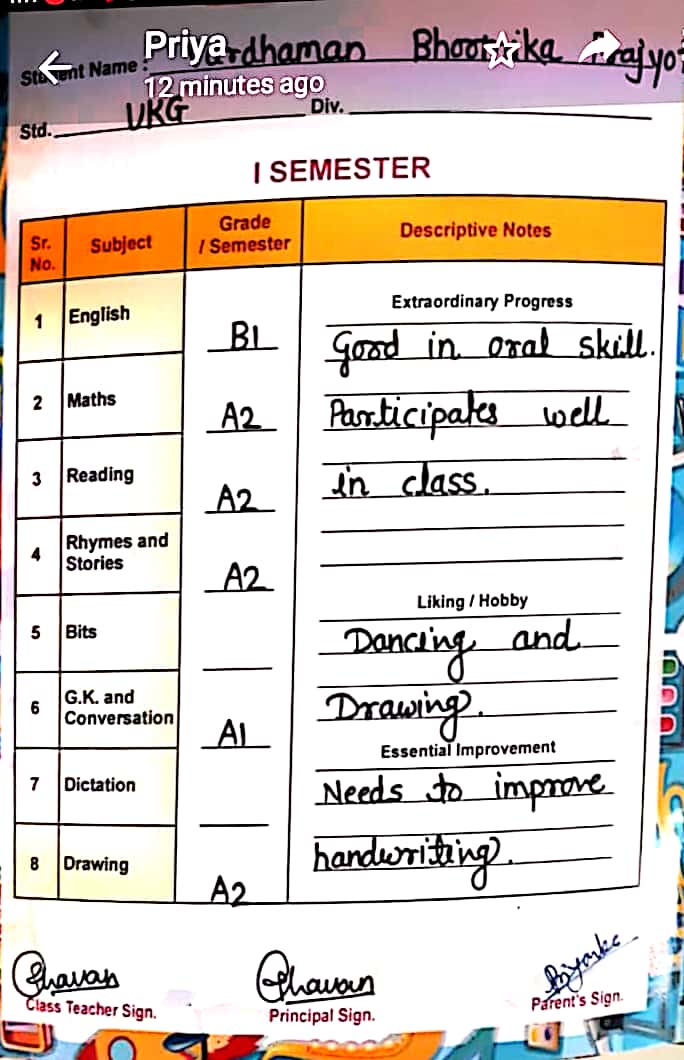 Priya
12 minutes ago
Student Name : Bhoomika
Std. UKG Div.
I SEMESTER
Sr. No. Subject Grade / Semester Descriptive Notes
1 English B1
2 Maths A2
3 Reading A2
4 Rhymes and Stories A2
5 Bits
6 G.K. and Conversation A1
7 Dictation
8 Drawing A2
Extraordinary Progress
Good in oral skill.
Participates well
in class.
Liking / Hobby
Dancing and
Drawing.
Essential Improvement
Needs to improve
handwriting.
Chavan Chavan Priyanka
Class Teacher Sign. Principal Sign. Parent's Sign.